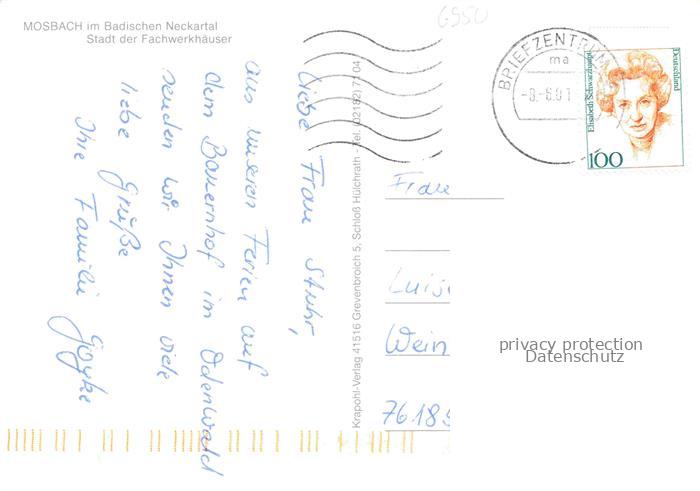 MOSBACH im Badischen Neckartal
Stadt der Fachwerkhäuser
6950
Liebe Frau Stuhr,
aus unseren Ferien auf
dem Bauernhof im Odenwald
senden wir Ihnen viele
liebe Grüße
Ihre Familie
Krapohl-Verlag 41516 Grevenbroich 5, Schloß Hülchrath · Tel. (02182) 71 04
BRIEFZENTRUM
ma
Elisabeth Schwarzhaupt
Deutschland
100
Frau
Luis
Wein
76185
privacy protection
Datenschutz